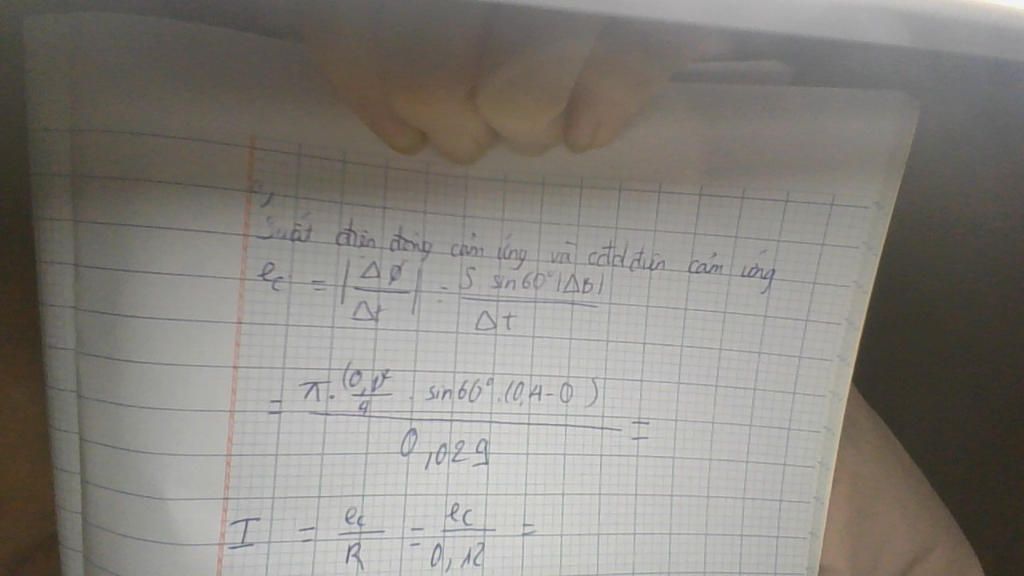 Suất điện động cảm ứng và cđdđiện cảm ứng
e_c = |ΔΦ/Δt| = S sin60°|ΔB|/Δt
= π.(0,1)²/4 . sin60°.(0,4-0)/0,029 =
I = e_c/R = e_c/0,12 =